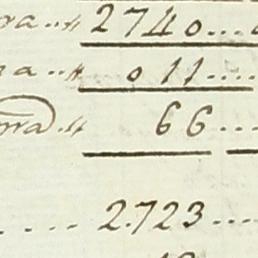 ra..., 2740....
a..., 011....
ma..., 66...
.... 2.723....